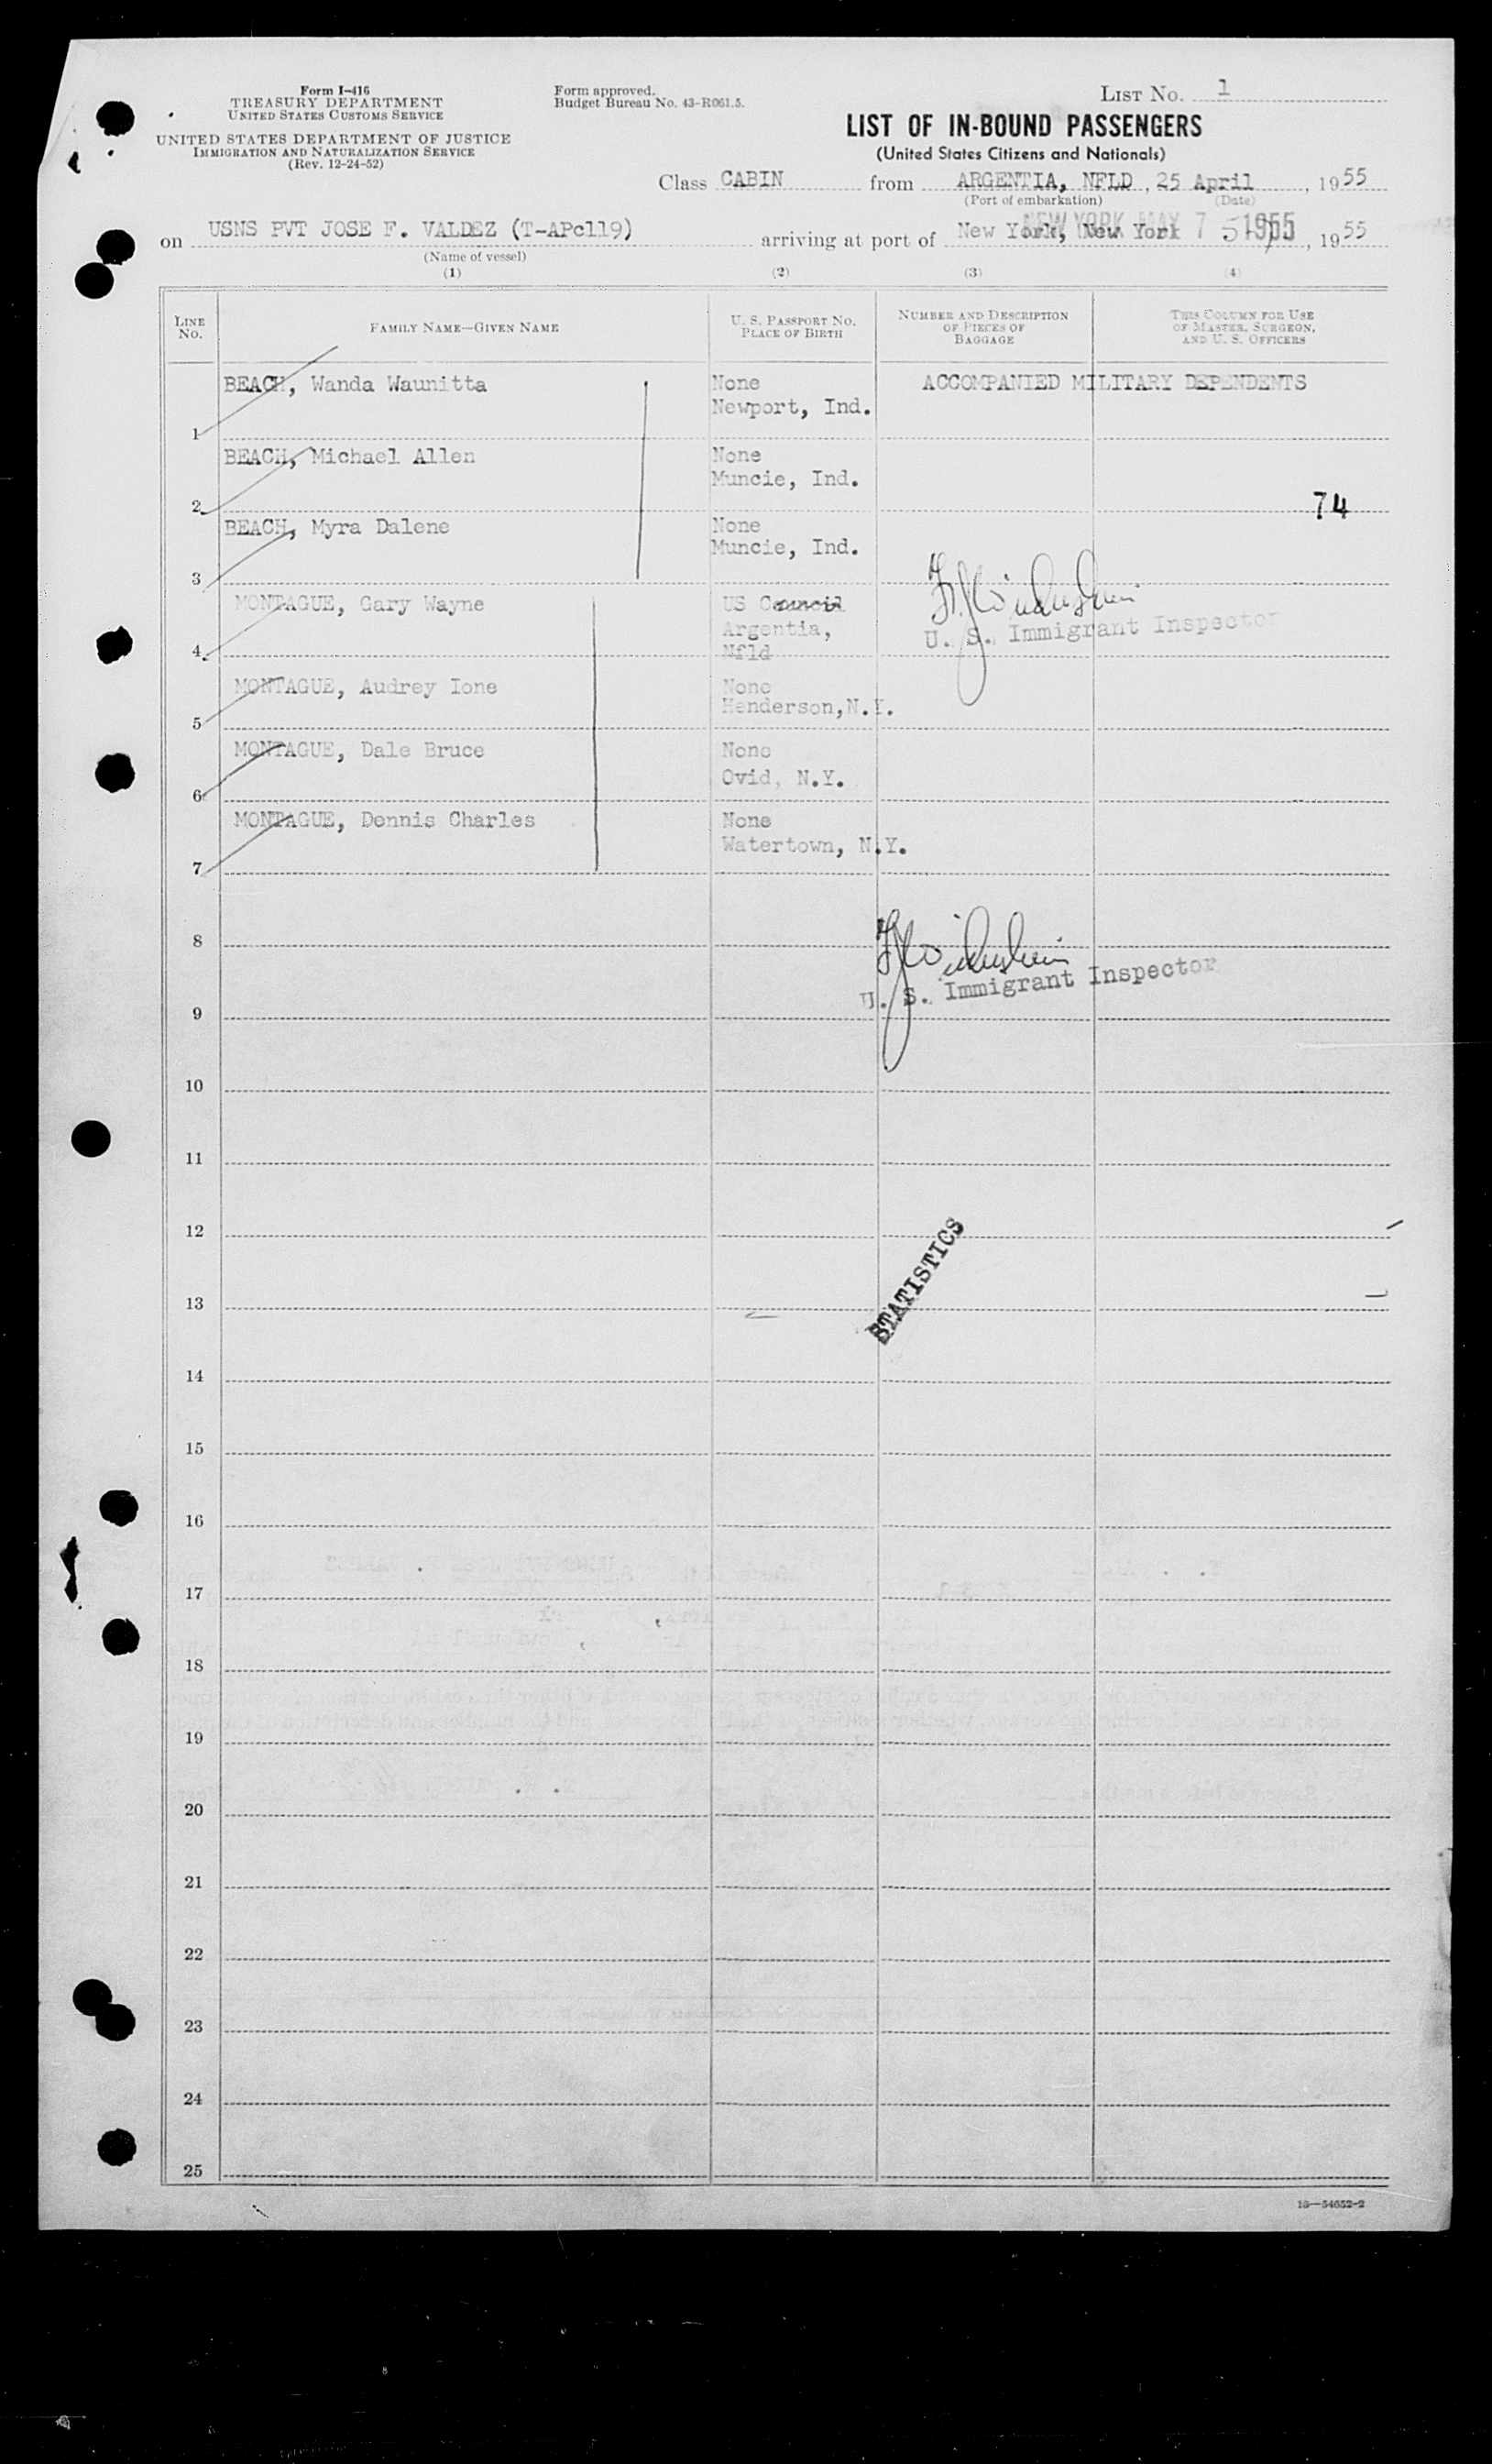 Form I-416
TREASURY DEPARTMENT
UNITED STATES CUSTOMS SERVICE
UNITED STATES DEPARTMENT OF JUSTICE
IMMIGRATION AND NATURALIZATION SERVICE
(Rev. 12-24-52)
Form approved.
Budget Bureau No. 43-R061.5.
LIST NO. 1
LIST OF IN-BOUND PASSENGERS
(United States Citizens and Nationals)
Class CABIN from ARGENTIA, NFLD, 25 April, 1955
(Port of embarkation) (Date)
on USNS PVT JOSE F. VALDEZ (T-APc119) arriving at port of New York, New York, 1955
NEW YORK MAY 7 1955
(Name of vessel)
(1) (2) (3) (4)
LINE NO. FAMILY NAME—GIVEN NAME U. S. PASSPORT NO. PLACE OF BIRTH NUMBER AND DESCRIPTION OF PIECES OF BAGGAGE THIS COLUMN FOR USE OF MASTER, SURGEON, AND U. S. OFFICERS
BEACH, Wanda Waunitta None ACCOMPANIED MILITARY DEPENDENTS
Newport, Ind.
1
BEACH, Michael Allen None
Muncie, Ind.
2 74
BEACH, Myra Dalene None
Muncie, Ind.
3
MONTAGUE, Gary Wayne US Council
Argentia,
U. S. Immigrant Inspector
4 Nfld
MONTAGUE, Audrey Ione None
Henderson, N.Y.
5
MONTAGUE, Dale Bruce None
Ovid, N.Y.
6
MONTAGUE, Dennis Charles None
Watertown, N.Y.
7
8
U. S. Immigrant Inspector
9
10
11
12
STATISTICS
13
14
15
16
17
18
19
20
21
22
23
24
25
16—54652-2